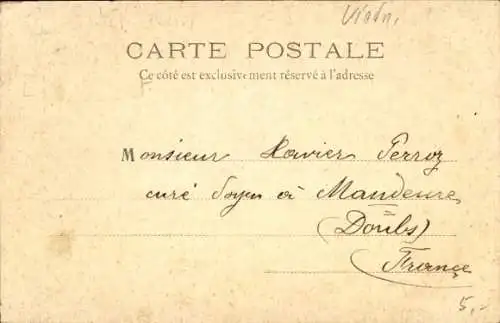 CARTE POSTALE
Ce côté est exclusivement réservé à l'adresse
Monsieur Xavier Perroz
curé Doyen à Mandeure
(Doubs)
(France
5,-